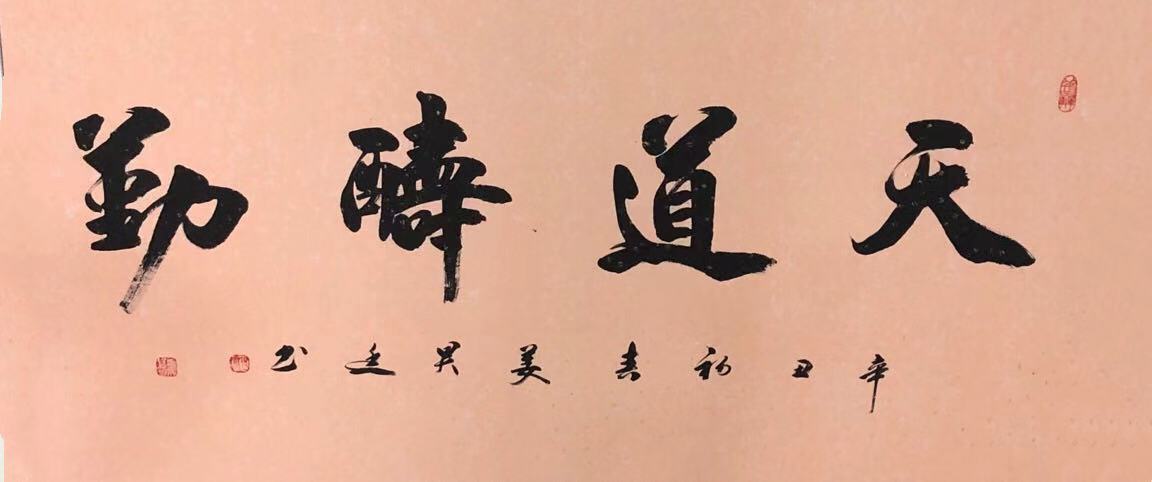 天道酬勤
辛丑初春姜昊廷书